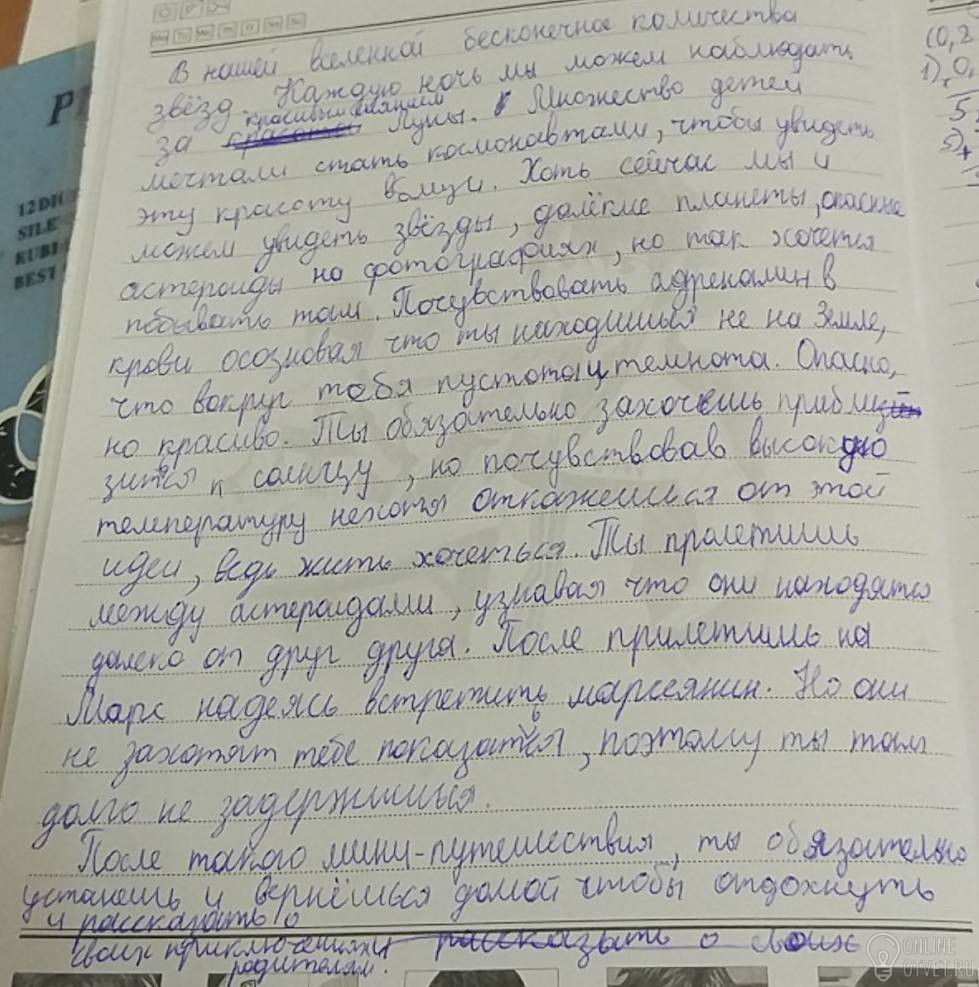 В нашей вселенной бесконечное количества
звёзд. Каждую ночь мы можем наблюдать
за красивым сиянием Луны. Множество детей
мечтали стать космонавтами, чтобы увидеть
эту красоту вблизи. Хоть сейчас мы и
можем увидеть звёзды, далёкие планеты, опасные
астероиды на фотографиях, но так хочется
побывать там. Почувствовать адреналин в
крови осозновая что ты находишься не на Земле,
что вокруг тебя пустота и темнота. Опасно,
но красиво. Ты обязательно захочешь прибли
зится к солнцу, но почувствовав высокую
температуру нехотя откажешься от этой
идеи, ведь жить хочеться. Ты пролетишь
между астероидами, узнавая что они находятся
далеко от друг друга. После прилетишь на
Марс надеясь встретить марсеянин. Но они
не захотят тебе показаться, поэтому ты там
долго не задержишься.
После такого мини-путешествия, ты обязательно
устанешь и вернёшься домой чтобы отдохнуть
и рассказать о
своих приключениях родителям.
рассказать о своих
12
SILE
KUBI
BEST
(0,2
1)
5
5)
ONLINE
OTVET.RU